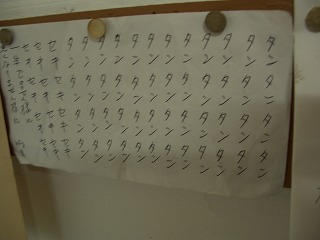 タンタンタンタン
タンタンタンタン
タンタンタンタン
タンタンタンタン
タンタンタンタン
タンタンタンタン
タンタンタンタン
タンタンタンタン
タンタンタンタン
タンタンタンタン
タンタンタンタン
タンタンタンタン
タンタンタンタン
セキセキセキセキ
セキセキセキセキ